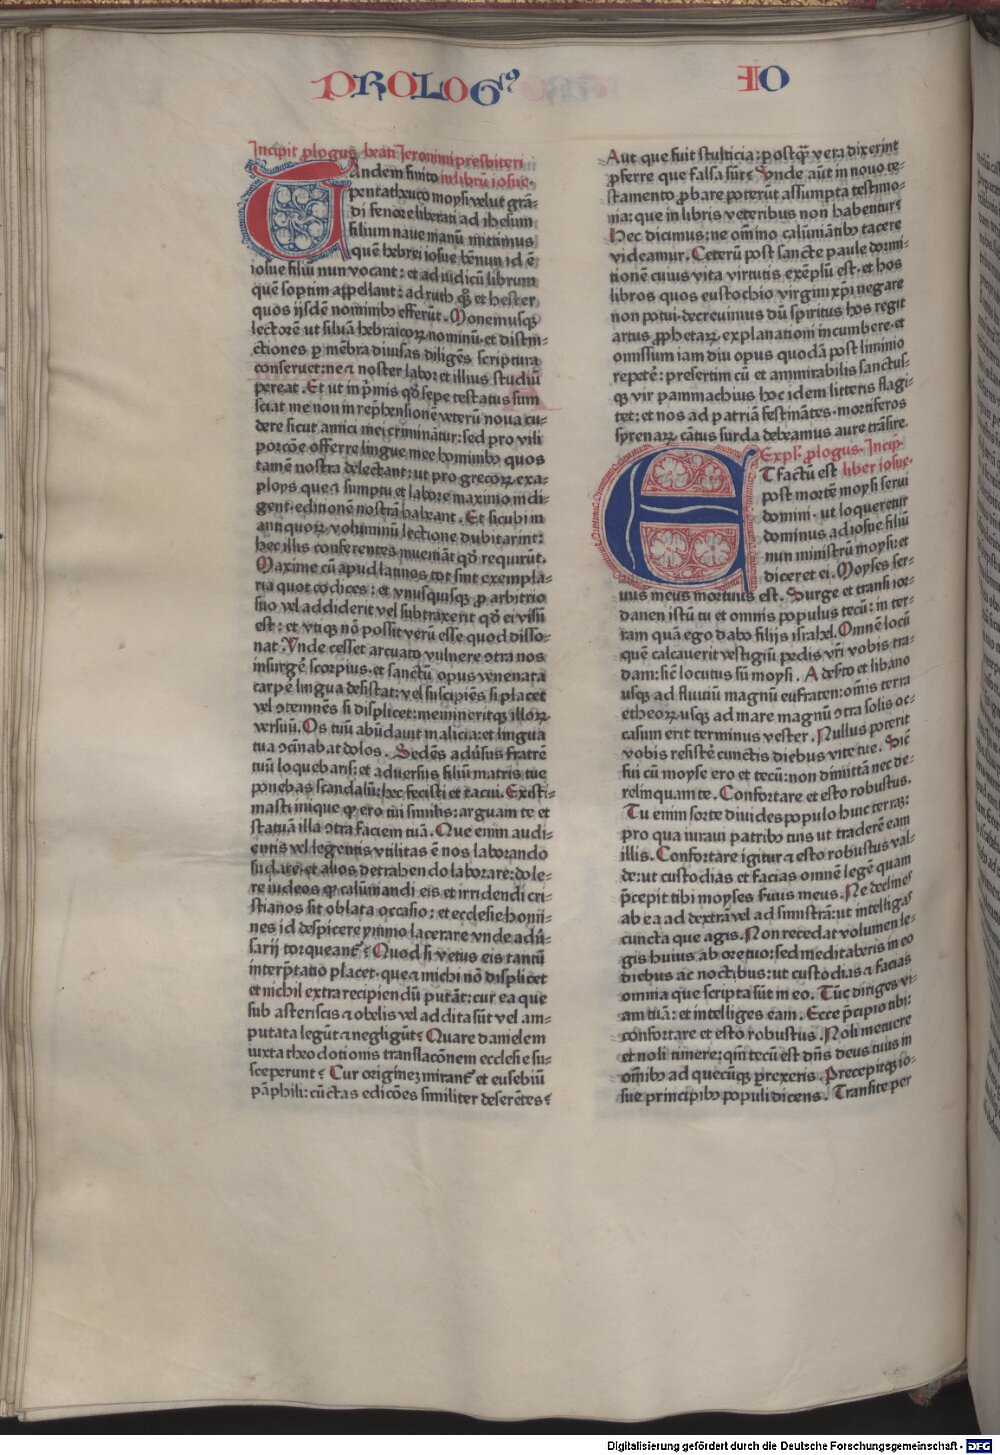 PROLOGꝰ
IO
Incipit ꝓlogus beati Ieronimi presbiteri
Tandem finito in librū iosue.
pentatheuco moysi velut grā-
di fenore liberati ad ihesum
filium naue manū mittimus
quē hebrei iosue bēnun id ē
iosue filiū nun vocant: et ad iudicū librum
quē soptim appellant: ad ruth qꝫ et hester
quos ijsdē nominibꝰ efferūt. Monemusqꝫ
lectorē ut siluā hebraicoꝝ nominū et distin-
ctiones ꝑ mēbra diuisas diligēs scriptura
conseruet: ne ⁊ noster labor et illius studiū
pereat. Et ut in pͥmis qđ sepe testatus sum
sciat me non in rep̄hensionē veterū noua cu-
dere sicut amici mei criminātur: sed pro vili
porcōe offerre lingue mee hominibꝰ quos
tamē nostra delectant: ut pro grecoꝝ exa-
ploys que ⁊ sumptu et labore maximo indi-
gent. editionē nostrā habeant. Et sicubi in
antiquoꝝ voluminū lectione dubitarint:
hec illis conferentes inueniāt qđ requirūt.
Maxime cū apud latinos tot sint exempla-
ria quot codices: et vnusquisqꝫ ꝓ arbitrio
suo vel addiderit vel subtraxerit qđ ei visū
est: et vtiqꝫ nō possit verū esse quod disso-
nat. Vnde cesset arcuato vulnere ɔtra nos
insurgē scorpius. et sanctū opus venenata
carpē lingua desistat: vel suscipiēs si placet
vel ɔtemnēs si displicet: memineritqꝫ illoꝝ
versuū. Os tuū abūdauit malicia: et lingua
tua ɔcīnabat dolos. Sedēs adūsus fratrē
tuū loquebaris: et aduersus filiū matris tue
ponebas scandalū: hec fecisti et tacui. Existi-
masti inique qđ ero tui similis: arguam te et
statuā illa ɔtra faciem tuā. Que enim audi-
entis vel legentis vtilitas ē nos laborando
sudare: et alios detrahendo laborare: dole-
re iudeos qđ calūmandi eis et irridendi cri-
stianos sit oblata occasio: et ecclesie homi-
nes id despicere ymmo lacerare vnde adū-
sarij torqueant᷑? Quod si vetus eis tantū
interp̄tatio placet. que ⁊ michi nō displicet
et nichil extra recipiendū putāt: cur ea que
sub asteriscis ⁊ obelis vel addita sūt vel am-
putata legūt ⁊ negligūt? Quare danielem
iuxta theodotionis translacōnem ecclesie su-
sceperunt? Cur originez mirant᷑ et eusebiū
pāphili: cūctas edicōes similiter deserētes?
Aut que fuit stulticia: postqꝫ vera dixerint
ꝓferre que falsa sūt? Vnde aūt in nouo te-
stamento ꝓbare poterūt assumpta testimo-
nia: que in libris veteribus non habentur?
Hec dicimus: ne om̄ino calūniātibꝰ tacere
videamur. Ceterū post sancte paule dormi-
tionē cuius vita virtutis exēplū est. et hos
libros quos eustochio virgini xp̄i negare
non potui. decreuimus dū spiritus hos regit
artus ꝓphetaꝝ explanationi incumbere. et
omissum iam diu opus quodā post liminio
repetē: presertim cū et ammirabilis sanctus-
qꝫ vir pammachius hoc idem litteris flagi-
tet: et nos ad patriā festināntes. mortiferos
syrenaꝝ cātus surda debeamus aure trāsire.
Expl᷑. ꝓlogus. Incip̄.
Et factū est liber iosue.
post mortē moysi serui
domini. ut loqueretur
dominus ad iosue filiū
nun ministrū moysi: et
diceret ei. Moyses ser-
uus meus mortuus est. Surge et transi ior-
danen istū tu et omnis populus tecū: in ter-
ram quā ego dabo filijs israhel. Omnē locū
quē calcauerit vestigiū pedis vr̄i vobis tra-
dam: sic̄ locutus sū moysi. A deserto et libano
usqꝫ ad fluuiū magnū eufraten: om̄is terra
etheoꝝ usqꝫ ad mare magnū ɔtra solis oc-
casum erit terminus vester. Nullus poterit
vobis resistē cunctis diebus vite tue. Sic̄
fui cū moyse ero et tecū: non dimittā nec de-
relinquam te. Confortare et esto robustus.
Tu enim sorte diuides populo huic terraꝫ:
pro qua iuraui patribꝰ tuis ut traderē eam
illis. Confortare igitur ⁊ esto robustus val-
de: ut custodias et facias omnē legē quam
p̄cepit tibi moyses suus meus. Ne declines
ab ea ad dextrā vel ad sinistrā: ut intelligas
cuncta que agis. Non recedat volumen le-
gis huius ab ore tuo: sed meditaberis in eo
diebus ac noctibus: ut custodias ⁊ facias
omnia que scripta sūt in eo. Tūc diriges vi-
am tuā: et intelliges eam. Ecce p̄cipio tibi:
confortare et esto robustus. Noli metuere
et noli timere: qm̄ tecū est dn̄s deus tuus in
om̄ibꝰ ad quecūqꝫ ꝑrexeris. Precepitqꝫ io-
sue principibꝰ populi dicens. Transite per
Digitalisierung gefördert durch die Deutsche Forschungsgemeinschaft - DFG